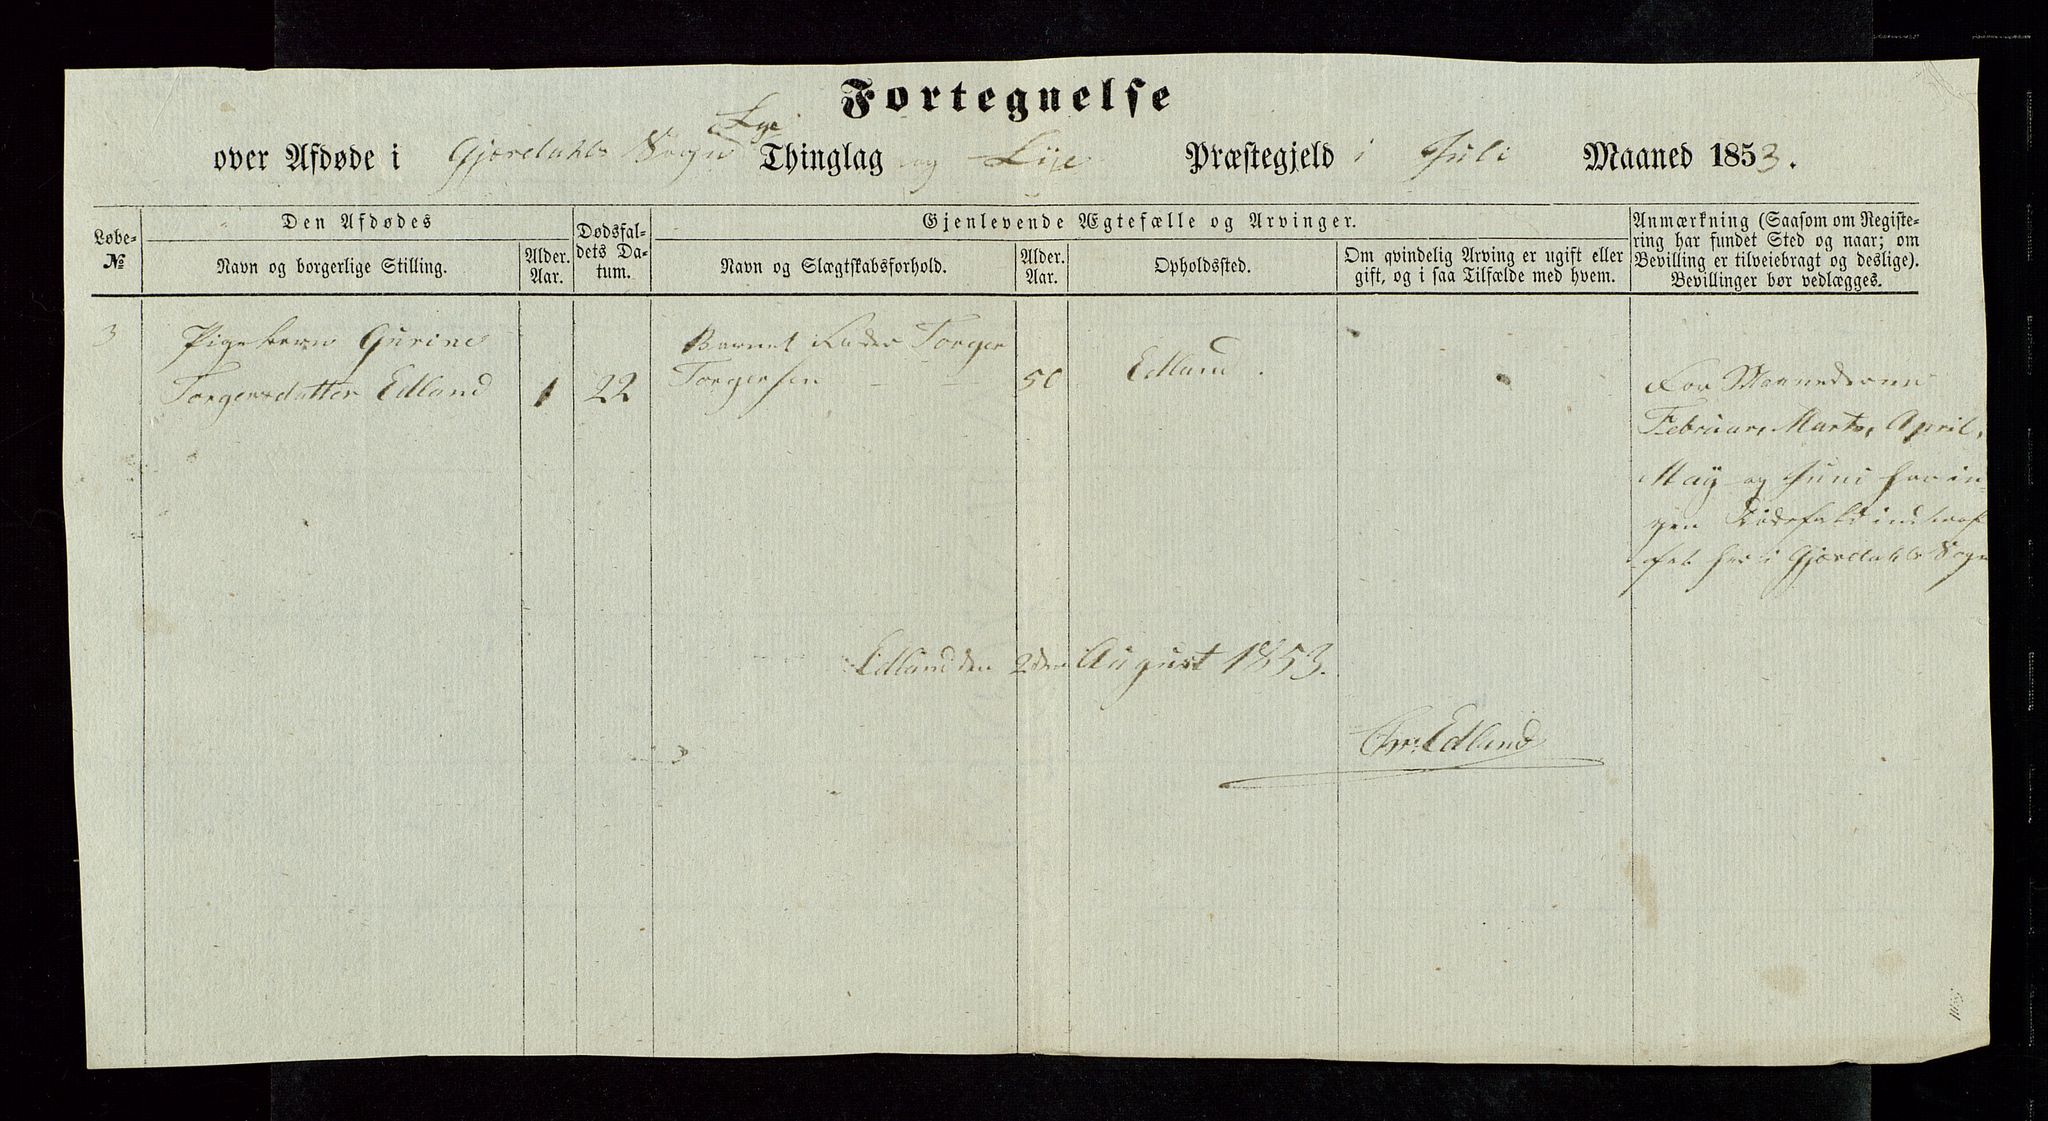 Fortegnelse
Lye
over Afdøde i Gjæsdahls Sogn Thinglag og Lÿe Præstegjeld i Juli Maaned 1853.
Løbe-
№
Den Afdødes
Navn og borgerlige Stilling.
Alder.
Aar.
Dødsfal-
dets Da-
tum.
Gjenlevende Ægtefælle og Arvinger.
Navn og Slægtskabsforhold.
Alder.
Aar.
Opholdssted.
Om qvindelig Arving er ugift eller
gift, og i saa Tilfælde med hvem.
Anmærkning (Saasom om Registe-
ring har fundet Sted og naar; om
Bevilling er tilveiebragt og deslige).
Bevillinger bør vedlægges.
3 Pigebarn Gurine
Torgersdatter Edland 1 22
Barnet Fader Torger
Torgersen 50 Edland.
For Maanederne
Februar, Marts, April,
Maÿ og Juni har in-
gen Dødsfald indtraf-
fet her i Gjæsdahls Sogn
Edland den 2den August 1853.
Chr. Edland